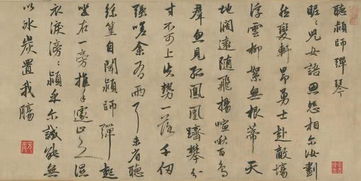 聽穎師彈琴
昵昵兒女語恩怨相爾汝劃
然變軒昂勇士赴敵場
浮雲柳絮無根蒂天
地闊遠隨飛揚喧啾百鳥
群忽見孤鳳凰躋攀分
寸不可上失勢一落千仞
強嗟余有兩耳未省聽
絲篁自聞穎師彈起
坐在一旁推手遽止之濕
衣淚滂滂穎乎爾誠能無
以冰炭置我腸